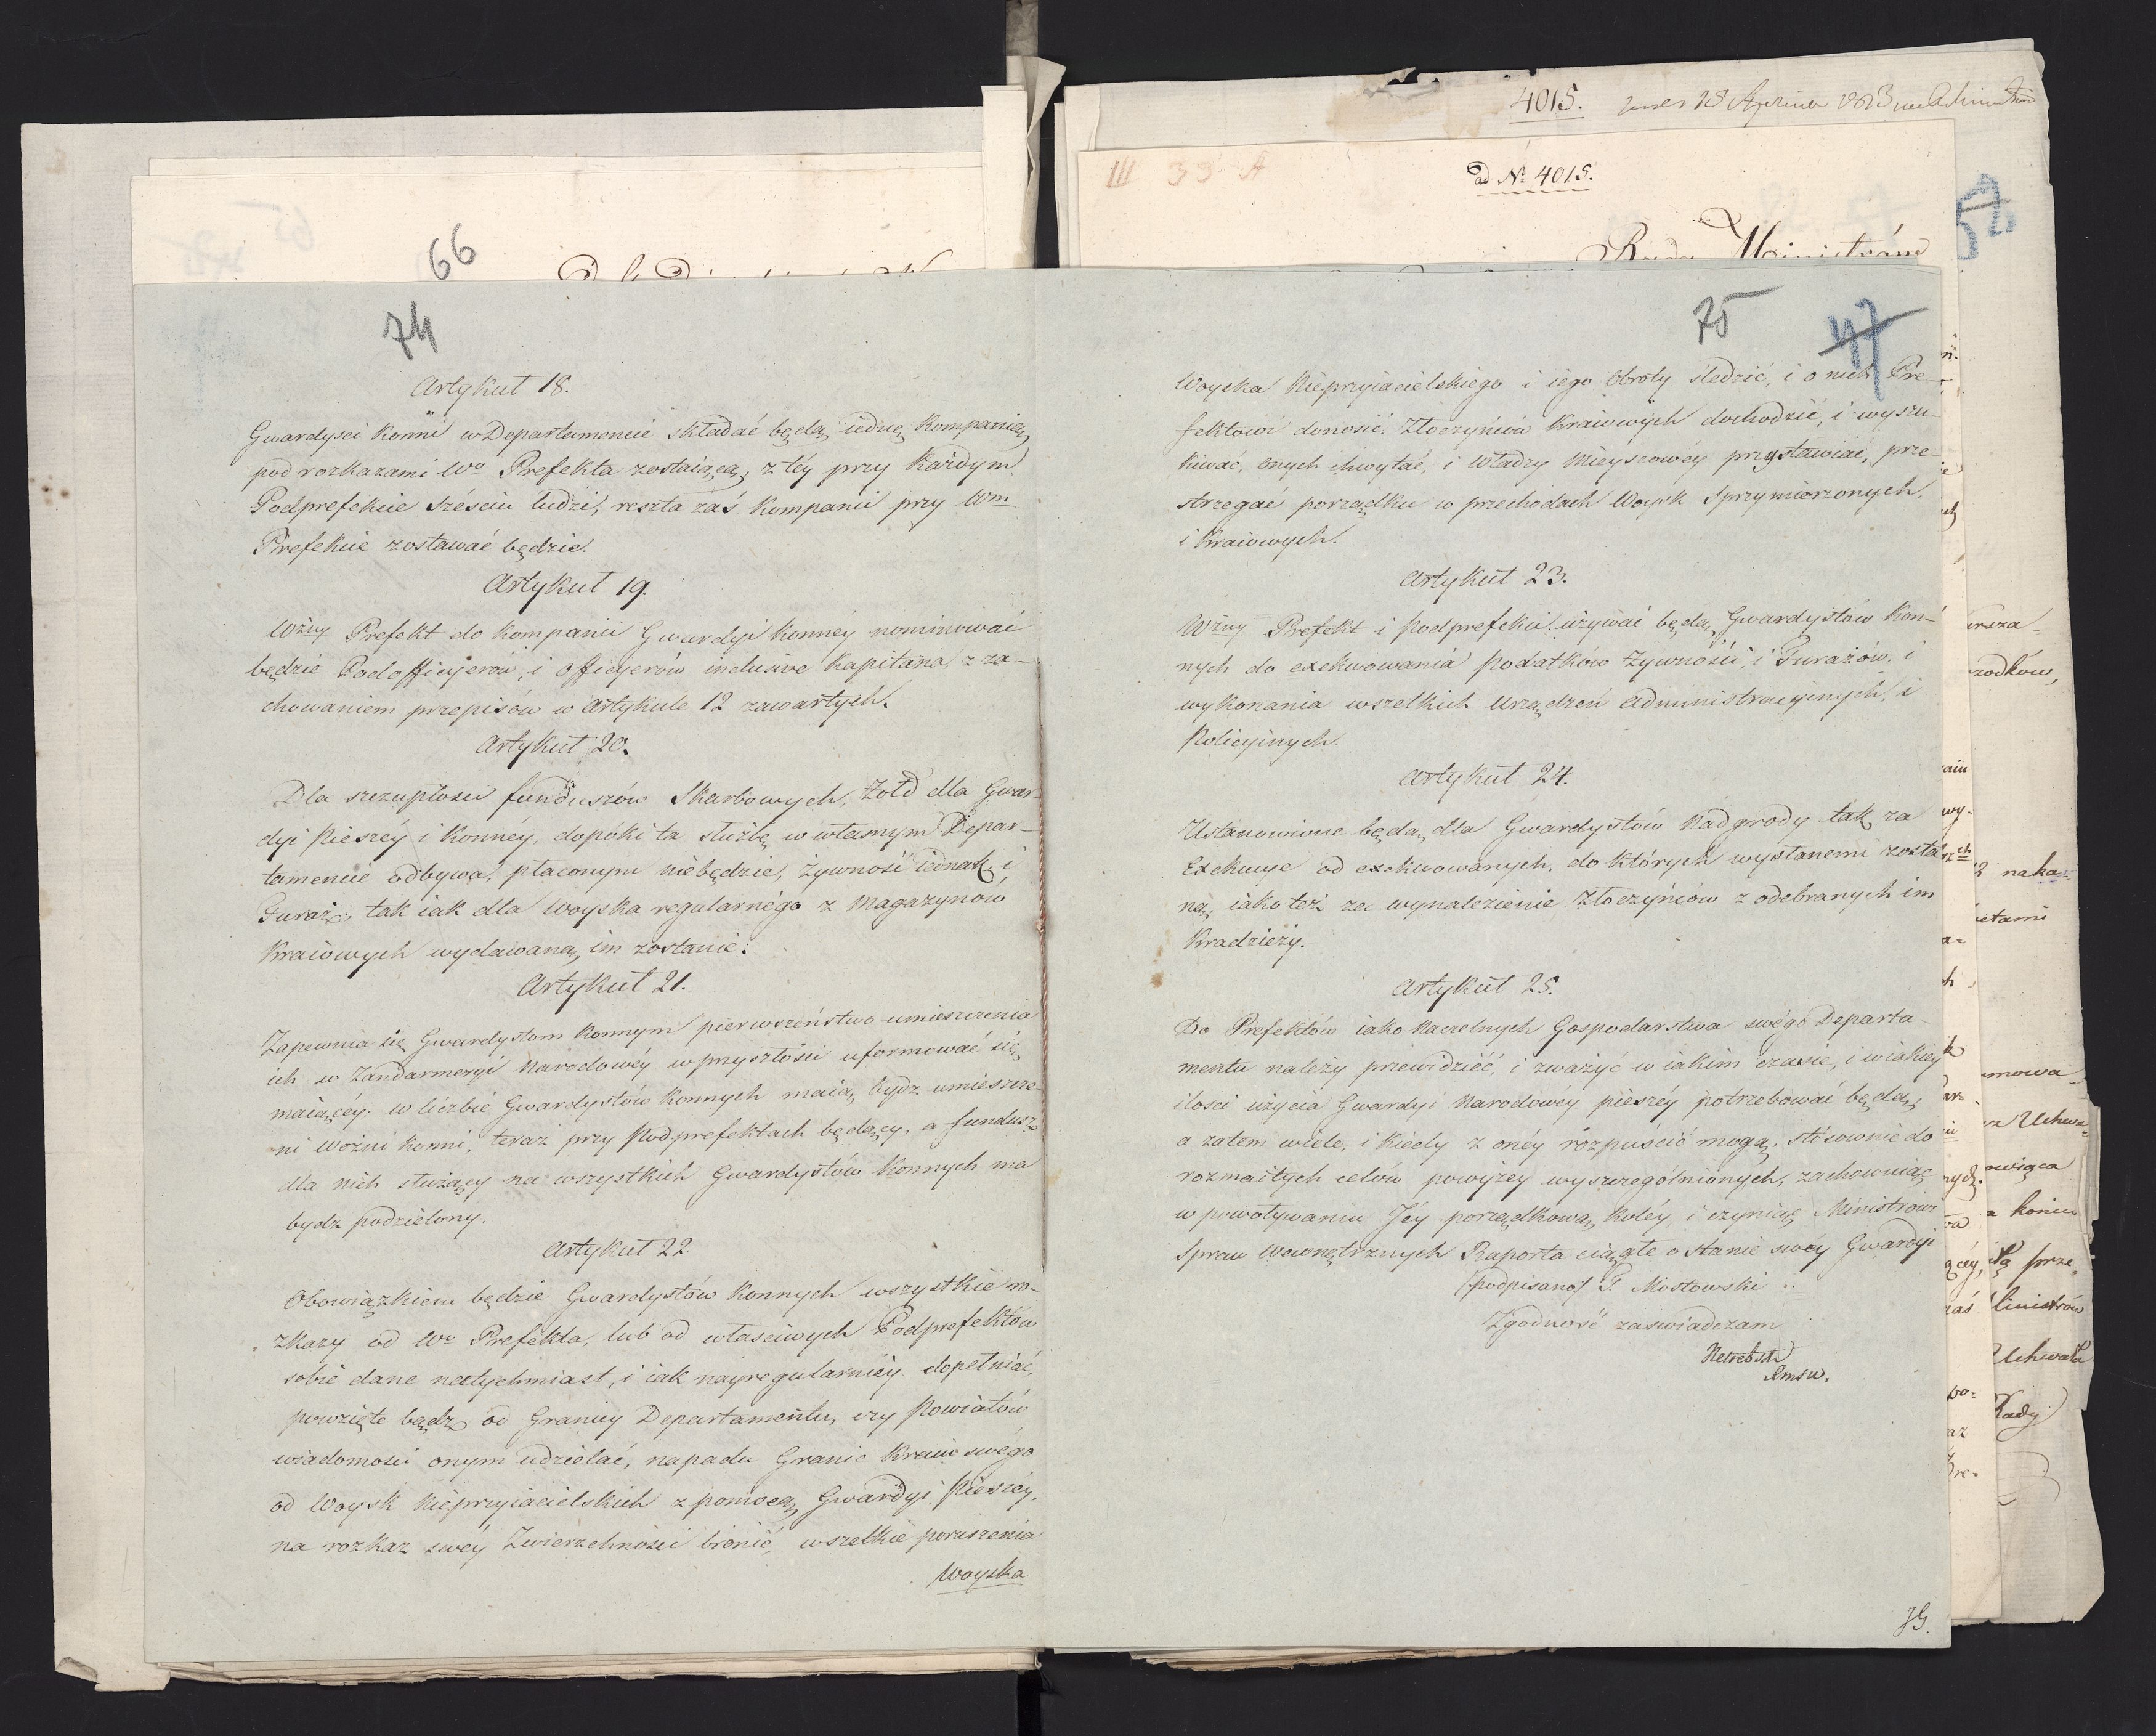 66
74
Artykuł 18.
Gwardyści Konni w Departamencie składać będą iednę Kompanią,
pod rozkazami Wo Prefekta zostaiącą, z téy przy Każdym
Podprefekcie sześciu ludzi, reszta zaś Kompanii przy Wm
Prefekcie zostawać będzie.
Artykuł 19.
Wżny Prefekt do Kompanii Gwardyi Konnéy nominować
będzie Podofficyerów, i Officyerów inclusive Kapitana z za-
chowaniem przepisów w Artykule 12 zawartych.
Artykuł 20.
Dla szczupłości funduszów Skarbowych, Żołd dla Gwar-
dyi Pieszéy i Konnéy, dopóki ta służbę w własnym Depar-
tamencie odbywa, płaconym niebędzie, Żywność iednak i
Furaż, tak iak dla Woyska regularnégo z Magazynów
Kraiowych wydawaną im zostanie:
Artykuł 21.
Zapewnia się Gwardystom Konnym pierwszeństwo umieszczenia
ich w Żandarmeryi Narodowéy w przyszłości uformować się
maiącéy: w liczbie Gwardystów Konnych maią bydz umieszcze-
ni Woźni Konni, teraz przy Podprefektach będący, a fundusz
dla nich służący na wszystkich Gwardystów Konnych ma
bydz podzielony.
Artykuł 22.
Obowiązkiem będzie Gwardystów Konnych wszystkie ro-
zkazy od Wo Prefekta, lub od właściwych Podprefektów
sobie dane natychmiast, i iak nayregularniéy dopełniać,
powzięte bądz od Granicy Departamentu, czy Powiatów
wiadomości onym udzielać, napadu Granic Kraiu swégo
od Woysk Nieprzyiacielskich z pomocą Gwardyi Pieszéy,
na rozkaz swéy Zwierzchności bronić, wszelkie poruszenia
Woyska
4015.
ad No 4015.
III 33 A
Rada Ministrów
52
75
47
Woyska Nieprzyiacielskiego i iego Obroty śledzić, i o nich Pre-
fektowi donosić. Złoczyńców Kraiowych dochodzić, i wyszu-
kiwać, onych chwytać, i Władzy Mieyscowéy przystawiać, prze-
strzegać porządku w przechodach Woysk Sprzymierzonych,
i Kraiowych.
Artykuł 23.
Wżny Prefekt i Podprefekci używać będą Gwardystów Kon-
nych do exekwowania Podatków Żywności, i Furażów, i
wykonania wszelkich Urządzeń Administracyinych, i
Policyinych.
Artykuł 24.
Ustanowione będą dla Gwardystów Nadgrody tak za
Exekucye od exekwowanych, do których wysłanemi zosta-
ną, iako też za wynalezienie Złoczyńców z odebranych im
Kradzieży.
Artykuł 25.
Do Prefektów iako Naczelnych Gospodarstwa swégo Departa-
mentu należy przewidzieć, i zważyć w iakim czasie, i w iakiey
ilości użycia Gwardyi Narodowéy pieszéy potrzebować będą,
a zatem wiele, i Kiedy z onéy rozpuścić mogą, stósownie do
rozmaitych celów powyżey wyszczególnionych, zachowuiąc
w powoływaniu Jéy porządkową Koléy i czyniąc Ministrowi
Spraw Wewnętrznych Raporta ciągłe o stanie swéy Gwardyi
/podpisano/ T. Mostowski
Zgodność zaswiadczam